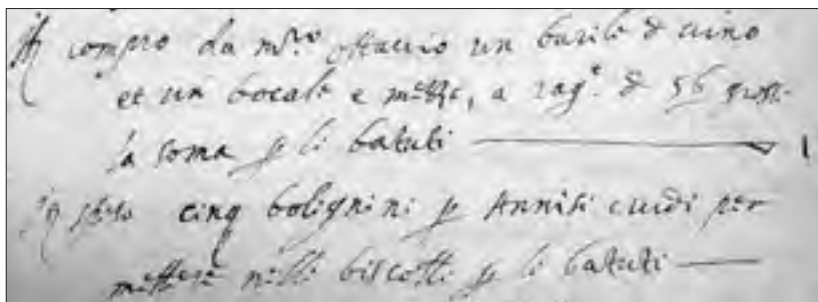 It compro da m.ro ottavio un barile d vino
et un bocale e mezzo, a rag.e d 56 grossi
la soma p li batuti 1
It speso cinq bolignini p Annisi cuidi per
mettere nelli biscotti p li batuti